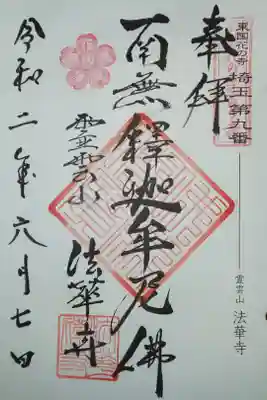 東国花の寺
埼玉 第九番
奉拝
南無釋迦牟尼佛
法華寺
令和二年六月七日
霊雲山 法華寺